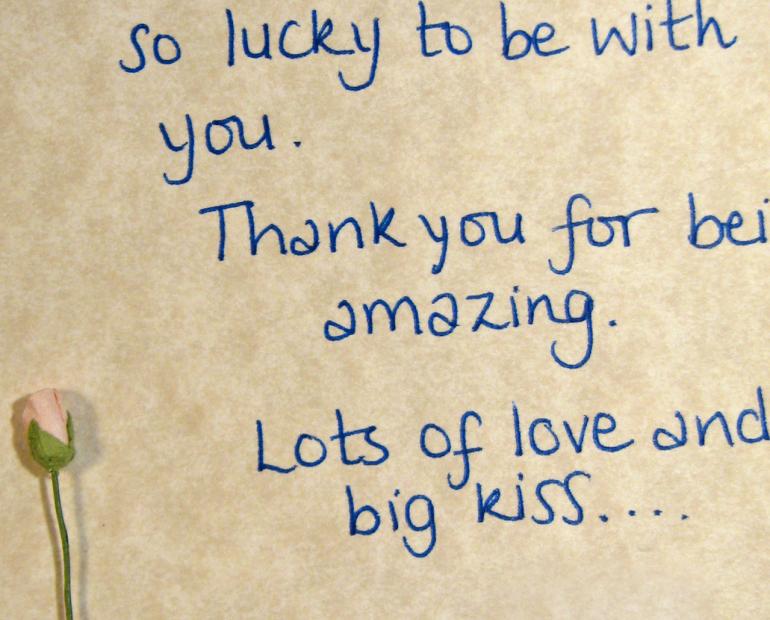 so lucky to be with
you.
Thank you for bei
amazing.
Lots of love and
big kiss....